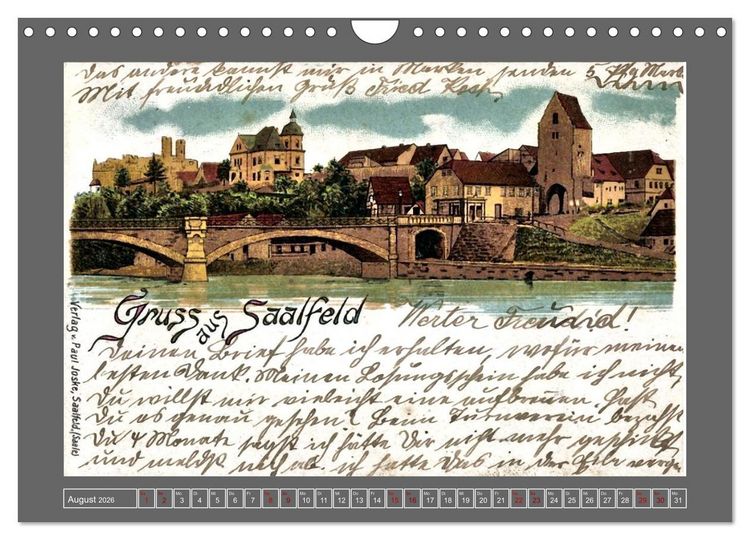 Das andere kannst nur in Marken senden 5 Pfg Mark
Mit freundlichen Gruß Fried Koch
Gruss aus Saalfeld
Werter Freund!
Deinen Brief habe ich erhalten, wofür meinen
besten Dank. Meinen Losungsschein habe ich nicht,
Du willst mir vielleicht eine aufbrennen. Hast
Du es genau gesehen? Beim Turnverein
Du 4 Monate sagst ich hätte Dir nicht mehr geschickt
und meldst ich hätte Das in der
Verlag v. Paul Joske, Saalfeld, (Saale)
August 2026
Sa. So. Mo. Di. Mi. Do. Fr. Sa. So. Mo. Di. Mi. Do. Fr. Sa. So. Mo. Di. Mi. Do. Fr. Sa. So. Mo. Di. Mi. Do. Fr. Sa. So. Mo.
1 2 3 4 5 6 7 8 9 10 11 12 13 14 15 16 17 18 19 20 21 22 23 24 25 26 27 28 29 30 31